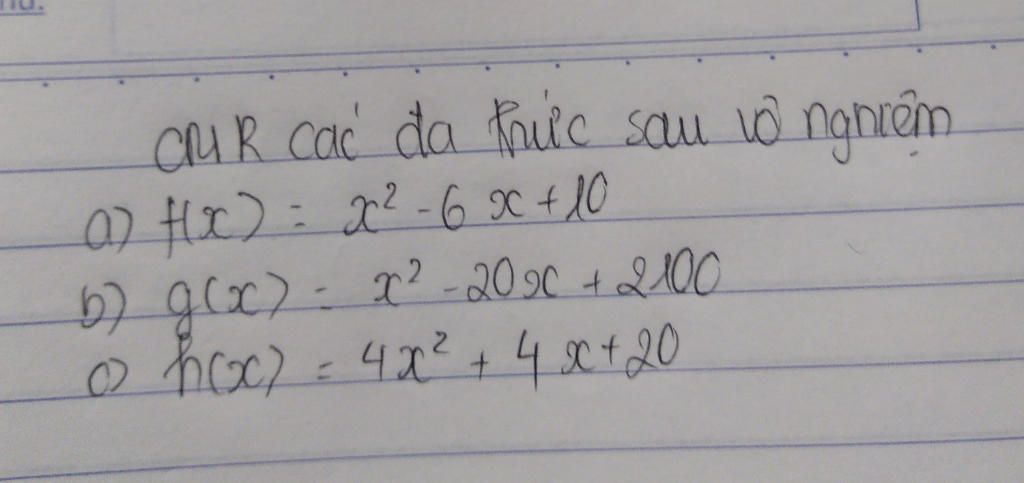 CMR các đa thức sau vô nghiệm
a) f(x) = x² - 6x + 10
b) g(x) = x² - 20x + 2100
c) h(x) = 4x² + 4x + 20